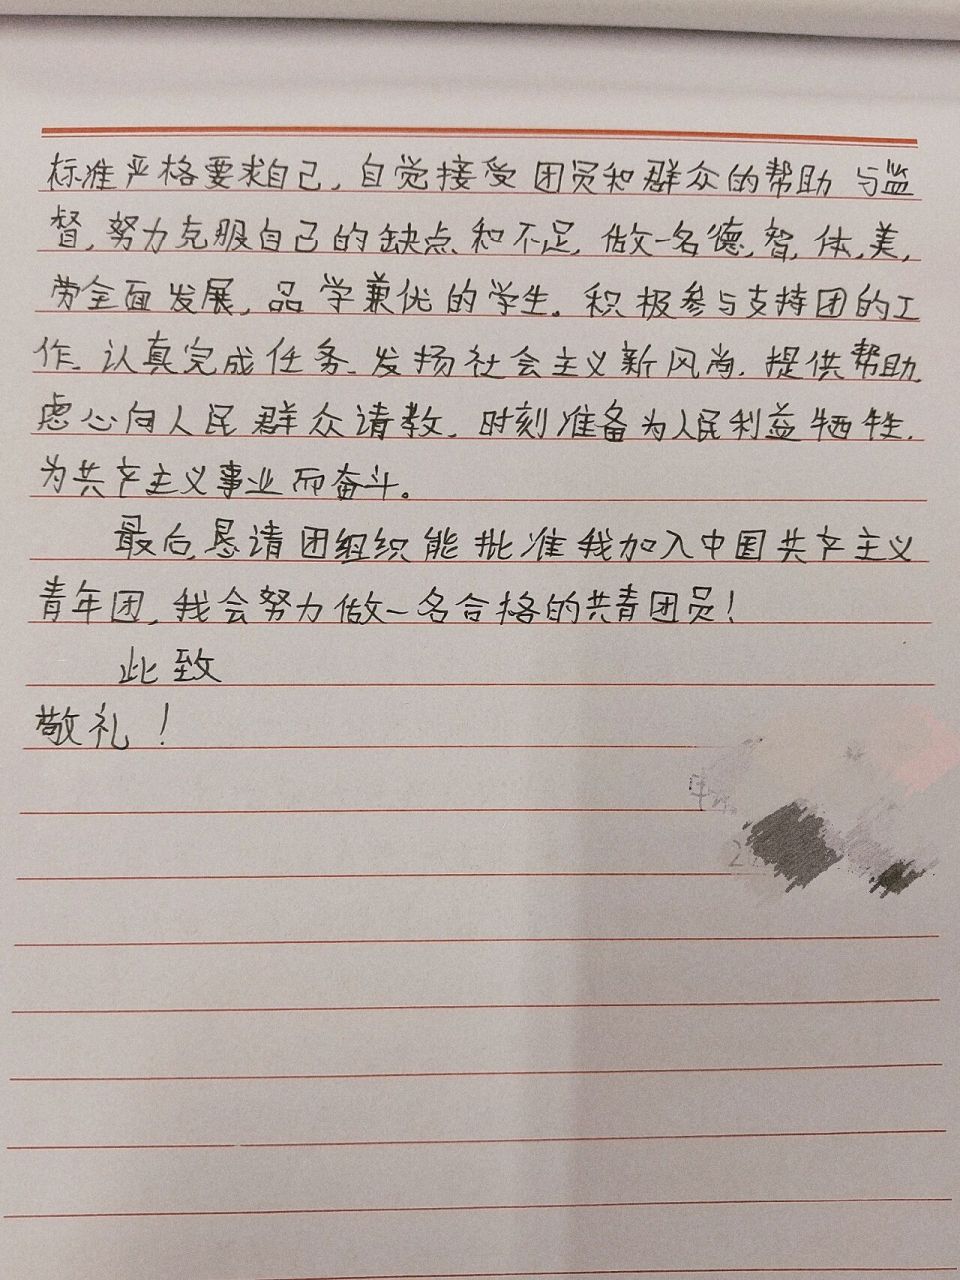 标准严格要求自己,自觉接受团员和群众的帮助与监
督,努力克服自己的缺点和不足,做一名德,智,体,美,
劳全面发展,品学兼优的学生。积极参与支持团的工
作,认真完成任务、发扬社会主义新风尚,提供帮助,
虑心向人民群众请教,时刻准备为人民利益牺牲,
为共产主义事业而奋斗。
最后,恳请团组织能批准我加入中国共产主义
青年团,我会努力做一名合格的共青团员!
此致
敬礼!